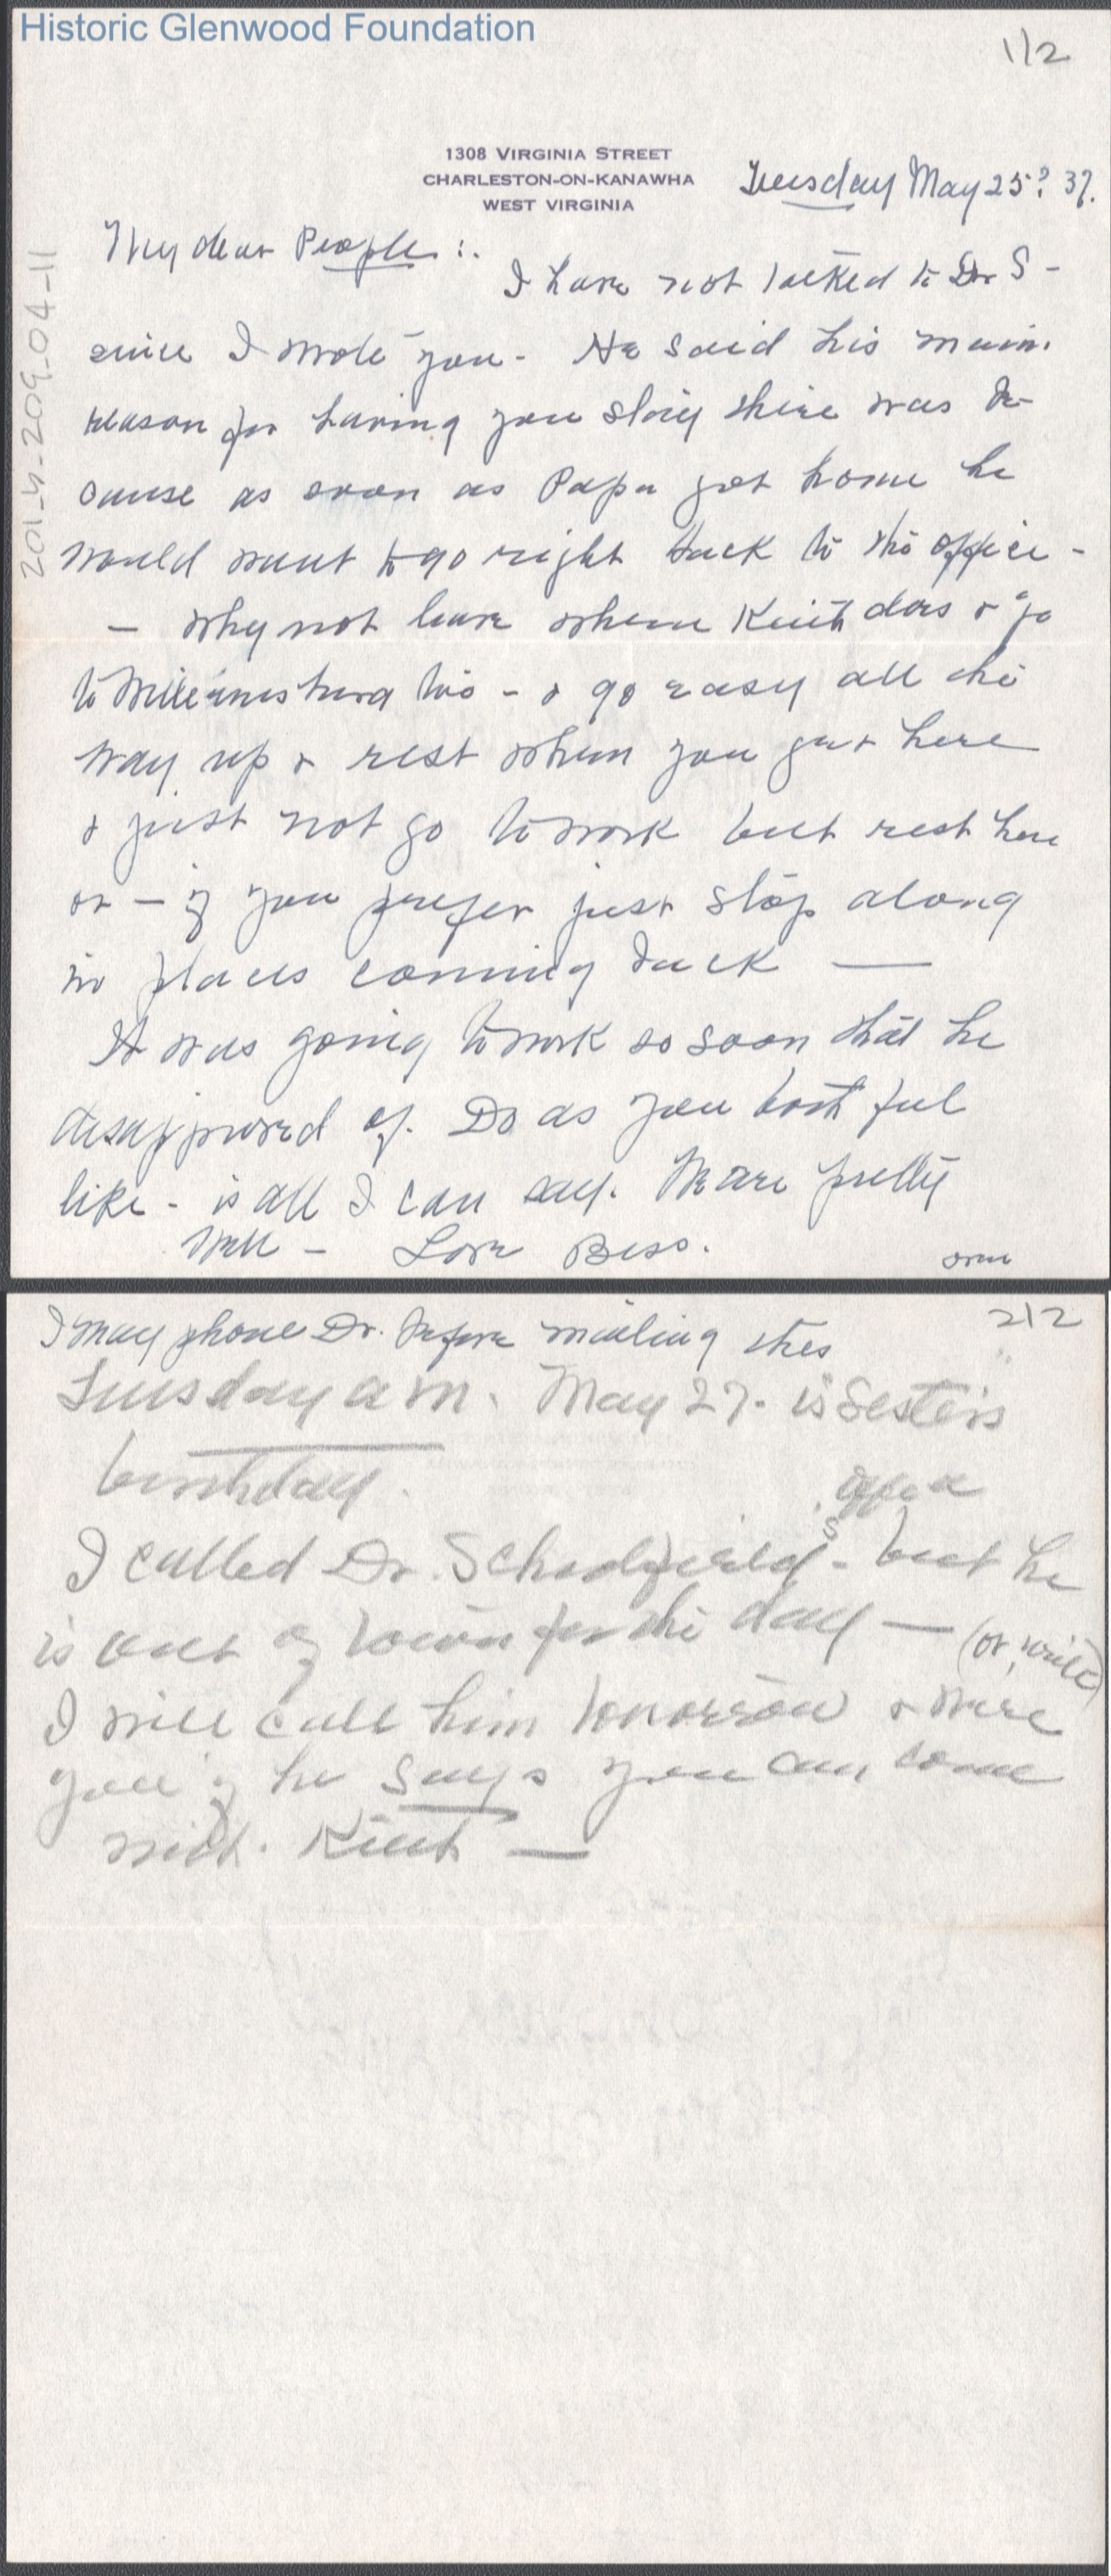 Historic Glenwood Foundation
1/2
1308 VIRGINIA STREET
CHARLESTON-ON-KANAWHA
WEST VIRGINIA
Tuesday May 25? 37.
201-4-209-04-11
My dear People:.
I have not talked to Dr S-
since I wrote you- He said his main
reason for having you stay there was be-
cause as soon as Papa got home he
would want to go right back to the office-
- Why not leave when Keith does & go
to Williamsburg too - & go easy all the
way up & rest when you get here
& just not go to work but rest here
or - if you prefer just stop along
in places coming back —
It was going to work so soon that he
disapproved of. Do as you both feel
like - is all I can say. We are pretty
well - Love Bess.
over
2/2
I may phone Dr. before mailing this
Tuesday a m. May 27. is Sister's
birthday.
office
I called Dr. Schoolfield's - but he
is out of town for the day — (or write)
I will call him tomorrow & wire
you if he says you can come
with Keith —